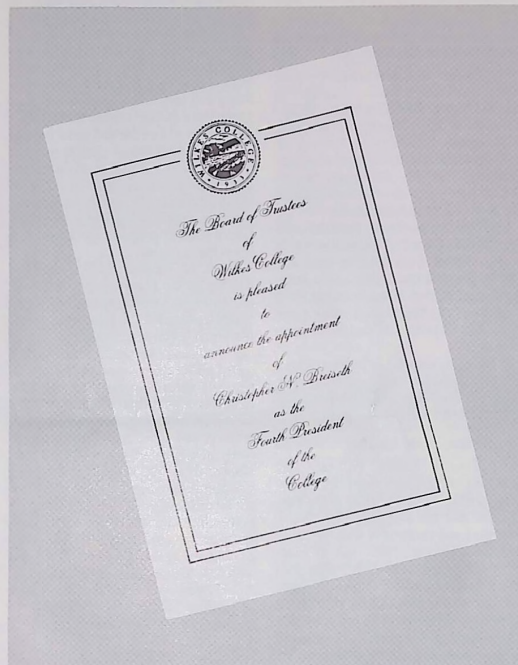 WILKES COLLEGE
• 1933 •
The Board of Trustees
of
Wilkes College
is pleased
to
announce the appointment
of
Christopher N. Breiseth
as the
Fourth President
of the
College